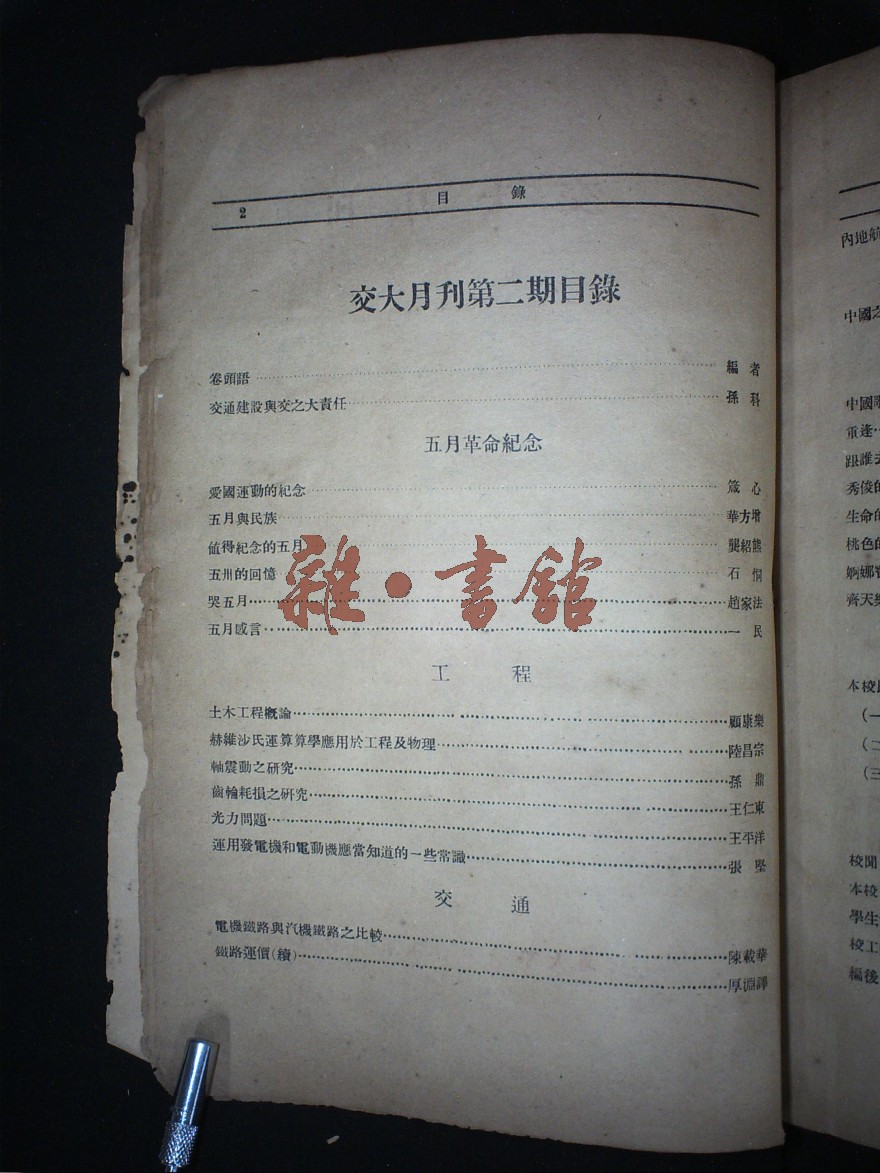 2 目錄
交大月刊第二期目錄
卷頭語 編者
交通建設與交之大責任 孫科
五月革命紀念
愛國運動的紀念 箴心
五月與民族 華方增
値得紀念的五月 龔紹熊
五卅的回憶 石恫
哭五月 趙家法
五月感言 一民
工程
土木工程概論 顧康樂
赫維沙氏運算算學應用於工程及物理 陸昌宗
軸震動之研究 孫鼎
齒輪耗損之研究 王仁東
光力問題 王平洋
運用發電機和電動機應當知道的一些常識 張堅
交通
電機鐵路與汽機鐵路之比較 陳載華
鐵路運價(續) 厚淵譯
雜·書館
內地航
中國之
中國
重逢
跟誰去
秀俊的
生命的
桃色的
婀娜
齊天樂
本校
(一
(二
(三
校聞
本校
學生
校工
編後